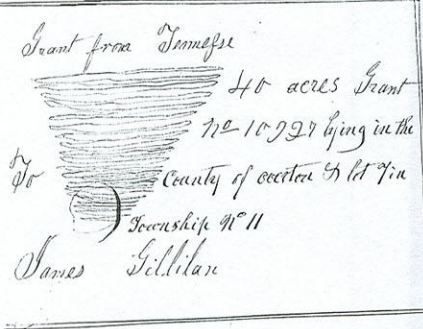 Grant from Tennessee
40 acres Grant
No 10927 lying in the
To County of overton & lot 7 in
Township No 11
James Gillilan